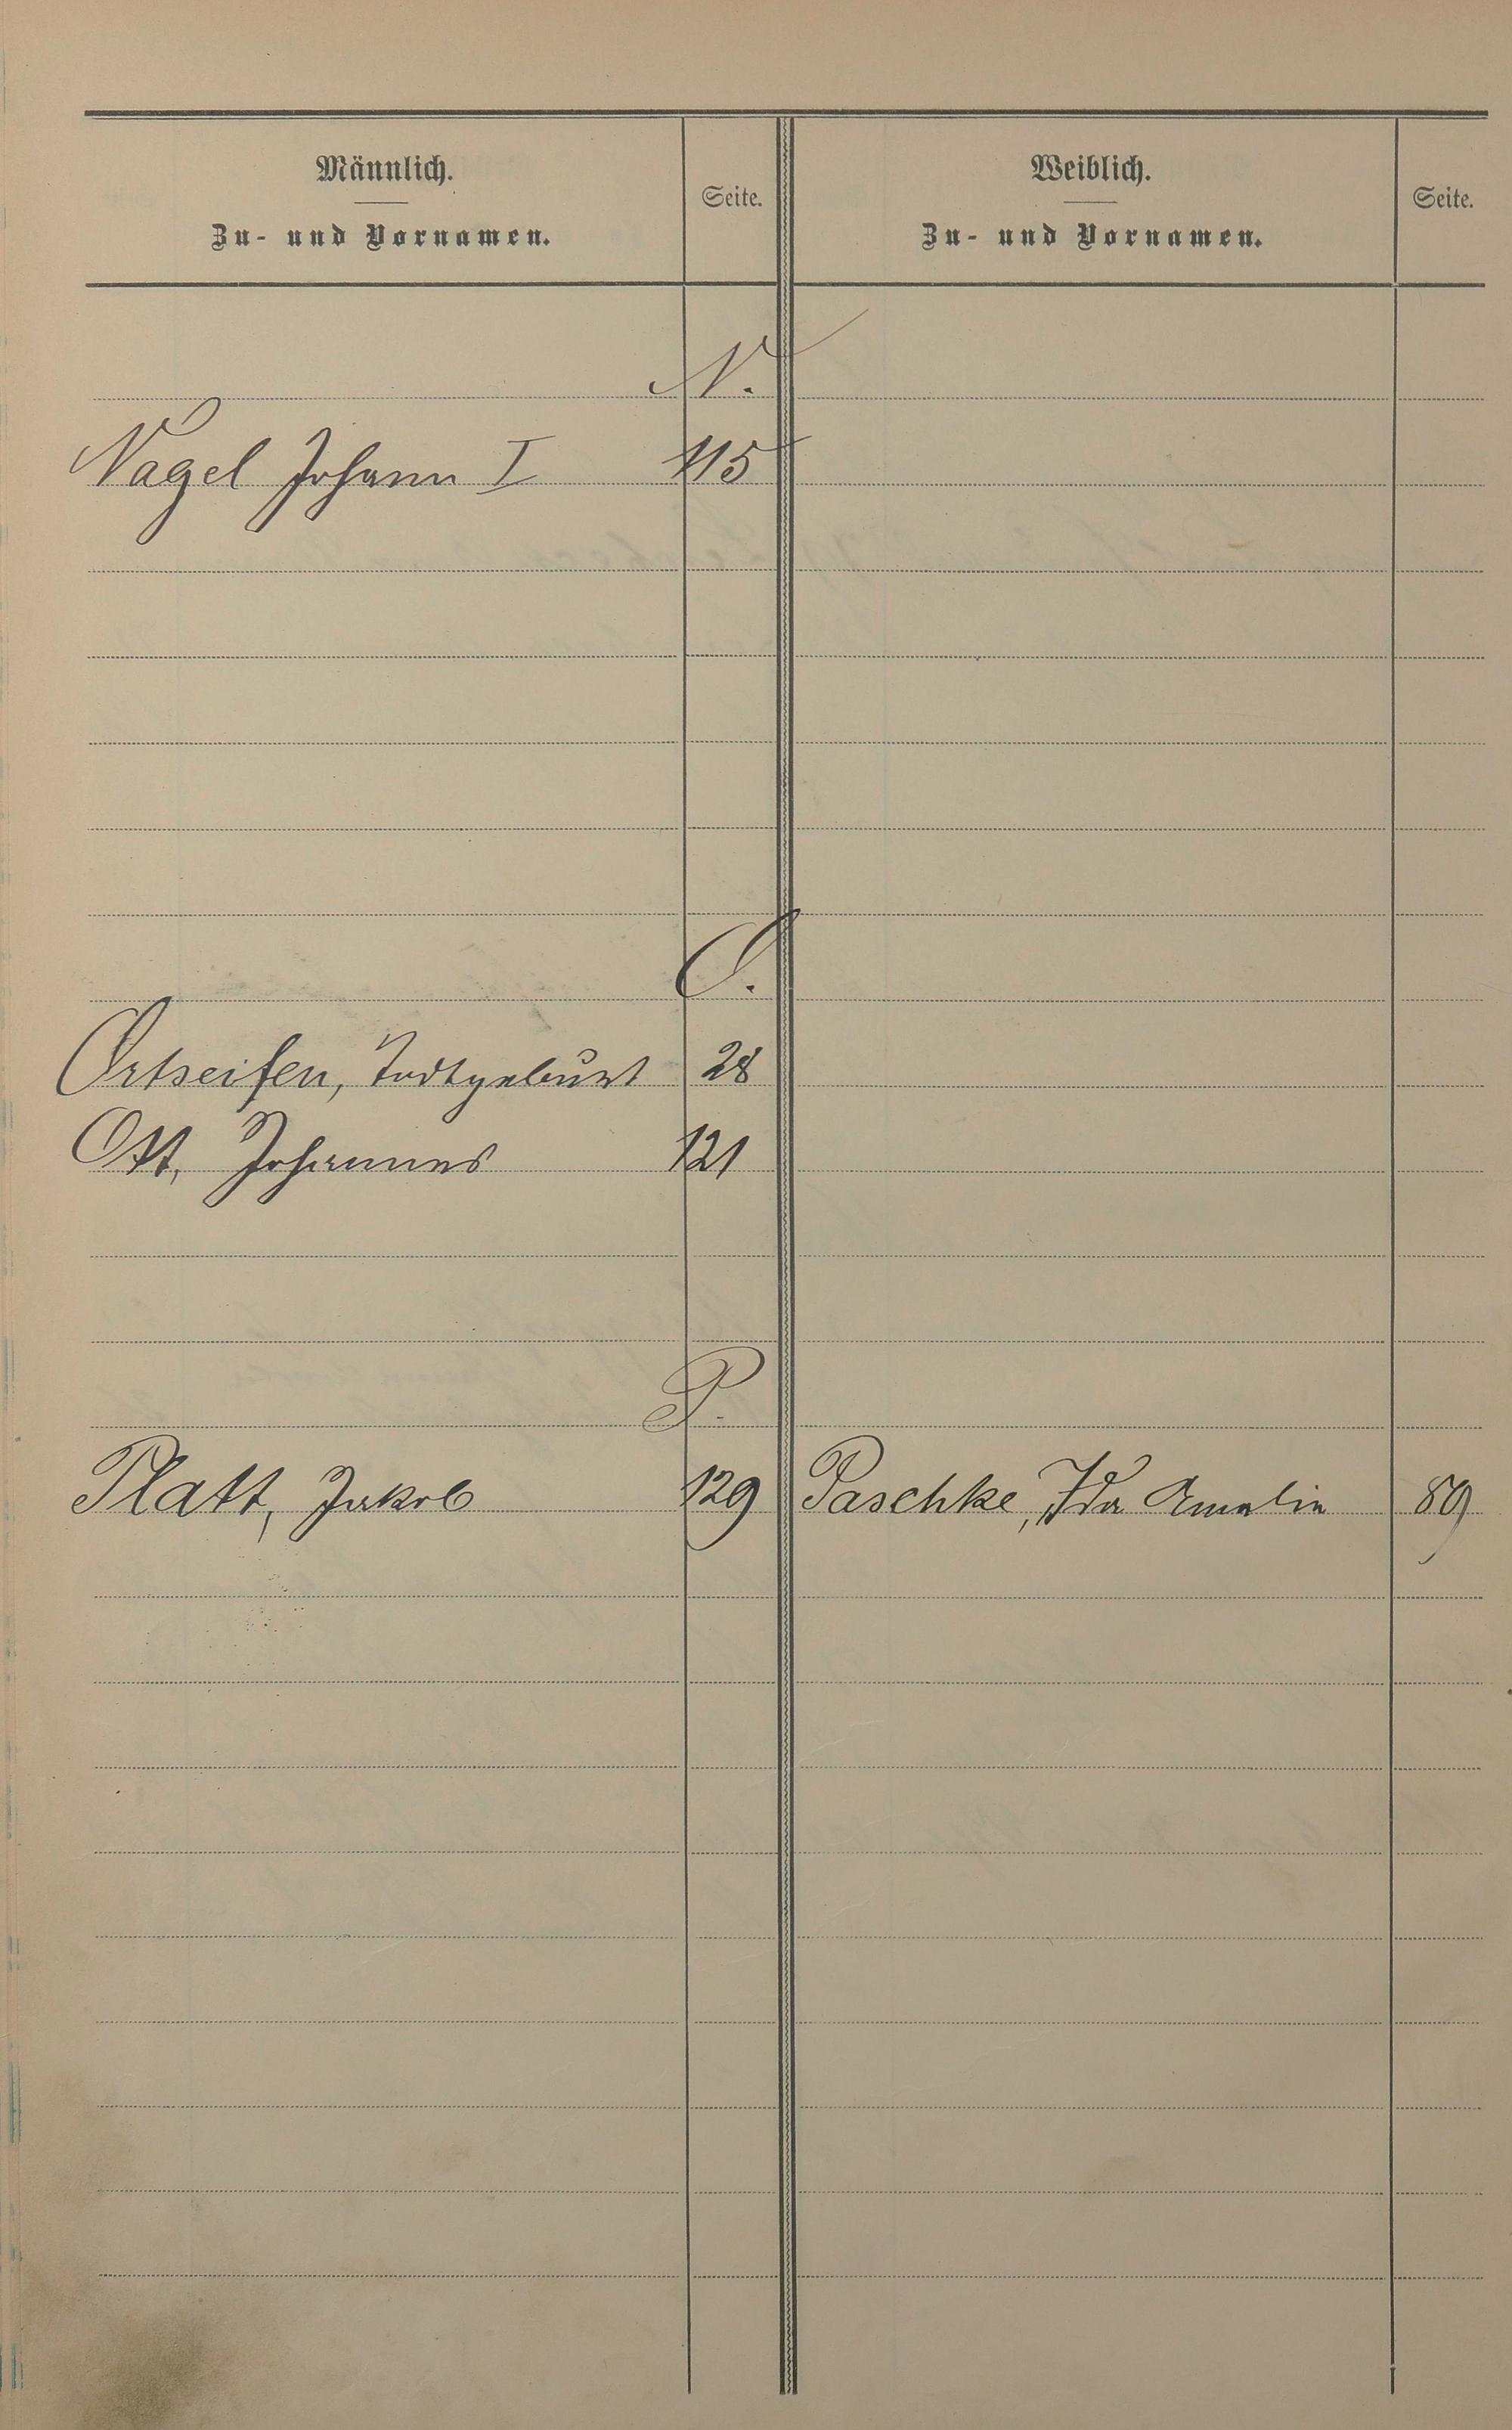 Männlich.
Zu- und Vornamen.
Seite.
Weiblich.
Zu- und Vornamen.
Seite.
N.
Nagel Johann I 115
O.
Ortseifen, Todtgeburt 28
Ott, Johannes 121
P.
Platt, Jakob 129 Paschke, Ida Emalie 89